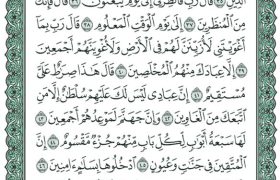 ٱلدِّينِ ٣٥ قَالَ رَبِّ فَأَنظِرْنِىٓ إِلَىٰ يَوْمِ يُبْعَثُونَ ٣٦ قَالَ فَإِنَّكَ
مِنَ ٱلْمُنظَرِينَ ٣٧ إِلَىٰ يَوْمِ ٱلْوَقْتِ ٱلْمَعْلُومِ ٣٨ قَالَ رَبِّ بِمَآ
أَغْوَيْتَنِى لَأُزَيِّنَنَّ لَهُمْ فِى ٱلْأَرْضِ وَلَأُغْوِيَنَّهُمْ أَجْمَعِينَ
٣٩ إِلَّا عِبَادَكَ مِنْهُمُ ٱلْمُخْلَصِينَ ٤٠ قَالَ هَٰذَا صِرَٰطٌ عَلَىَّ
مُسْتَقِيمٌ ٤١ إِنَّ عِبَادِى لَيْسَ لَكَ عَلَيْهِمْ سُلْطَٰنٌ إِلَّا مَنِ
ٱتَّبَعَكَ مِنَ ٱلْغَاوِينَ ٤٢ وَإِنَّ جَهَنَّمَ لَمَوْعِدُهُمْ أَجْمَعِينَ ٤٣
لَهَا سَبْعَةُ أَبْوَٰبٍ لِّكُلِّ بَابٍ مِّنْهُمْ جُزْءٌ مَّقْسُومٌ ٤٤ إِنَّ
ٱلْمُتَّقِينَ فِى جَنَّٰتٍ وَعُيُونٍ ٤٥ ٱدْخُلُوهَا بِسَلَٰمٍ ءَامِنِينَ ٤٦